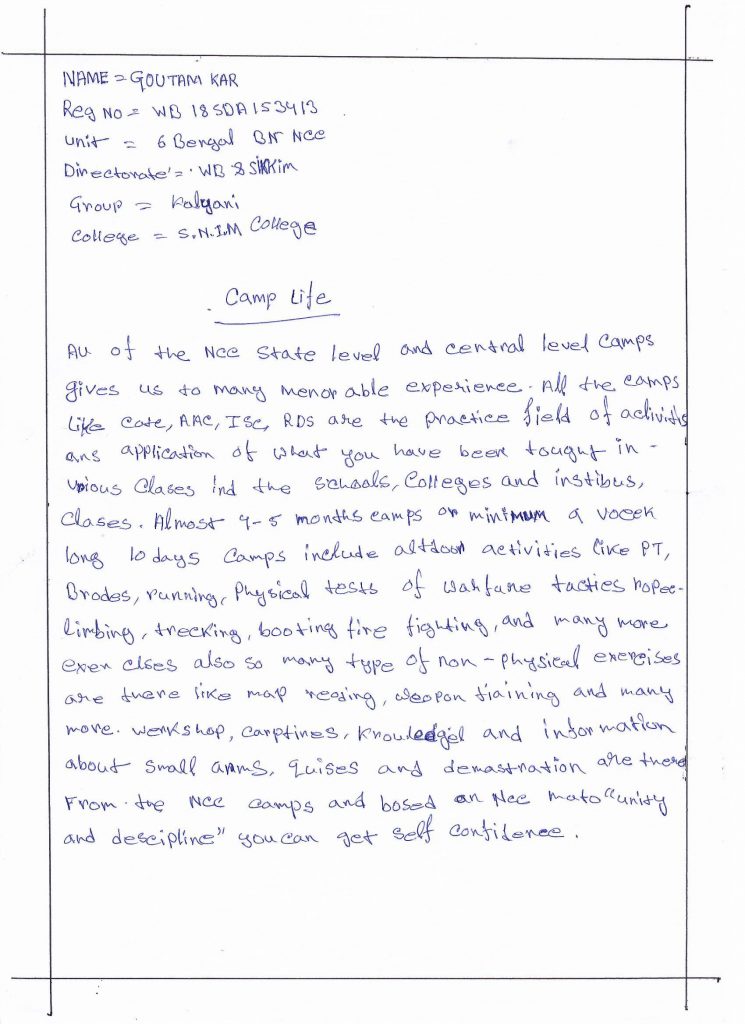 NAME = GOUTAM KAR
Reg No = WB 18 SDA 153413
Unit = 6 Bengal BN NCC
Directorate = WB & SIKKim
Group = Kalyani
College = S.N.I.M College
Camp Life
All of the NCC State level and central level Camps
gives us to many menorable experience. All the camps
Like Cate, AAC, ISC, RDS are the practice field of activitis
ans application of what you have been tought in -
Clases ind the schools, Colleges and instibus,
Clases. Almost 4-5 months camps or minimum a
long 10 days Camps include activities like PT,
Brodes, running, Physical tests of warfane tacties ropec-
limbing, trecking, booting fire fighting, and many more
exen cises also so many type of non-physical exercises
are there like map reading, weopon tiaining and many
more. workshop, and information
about small arms, quises and demastration are there
From the NCC camps and bosed on Ncc mato "unity
and descipline" you can get self confidence.